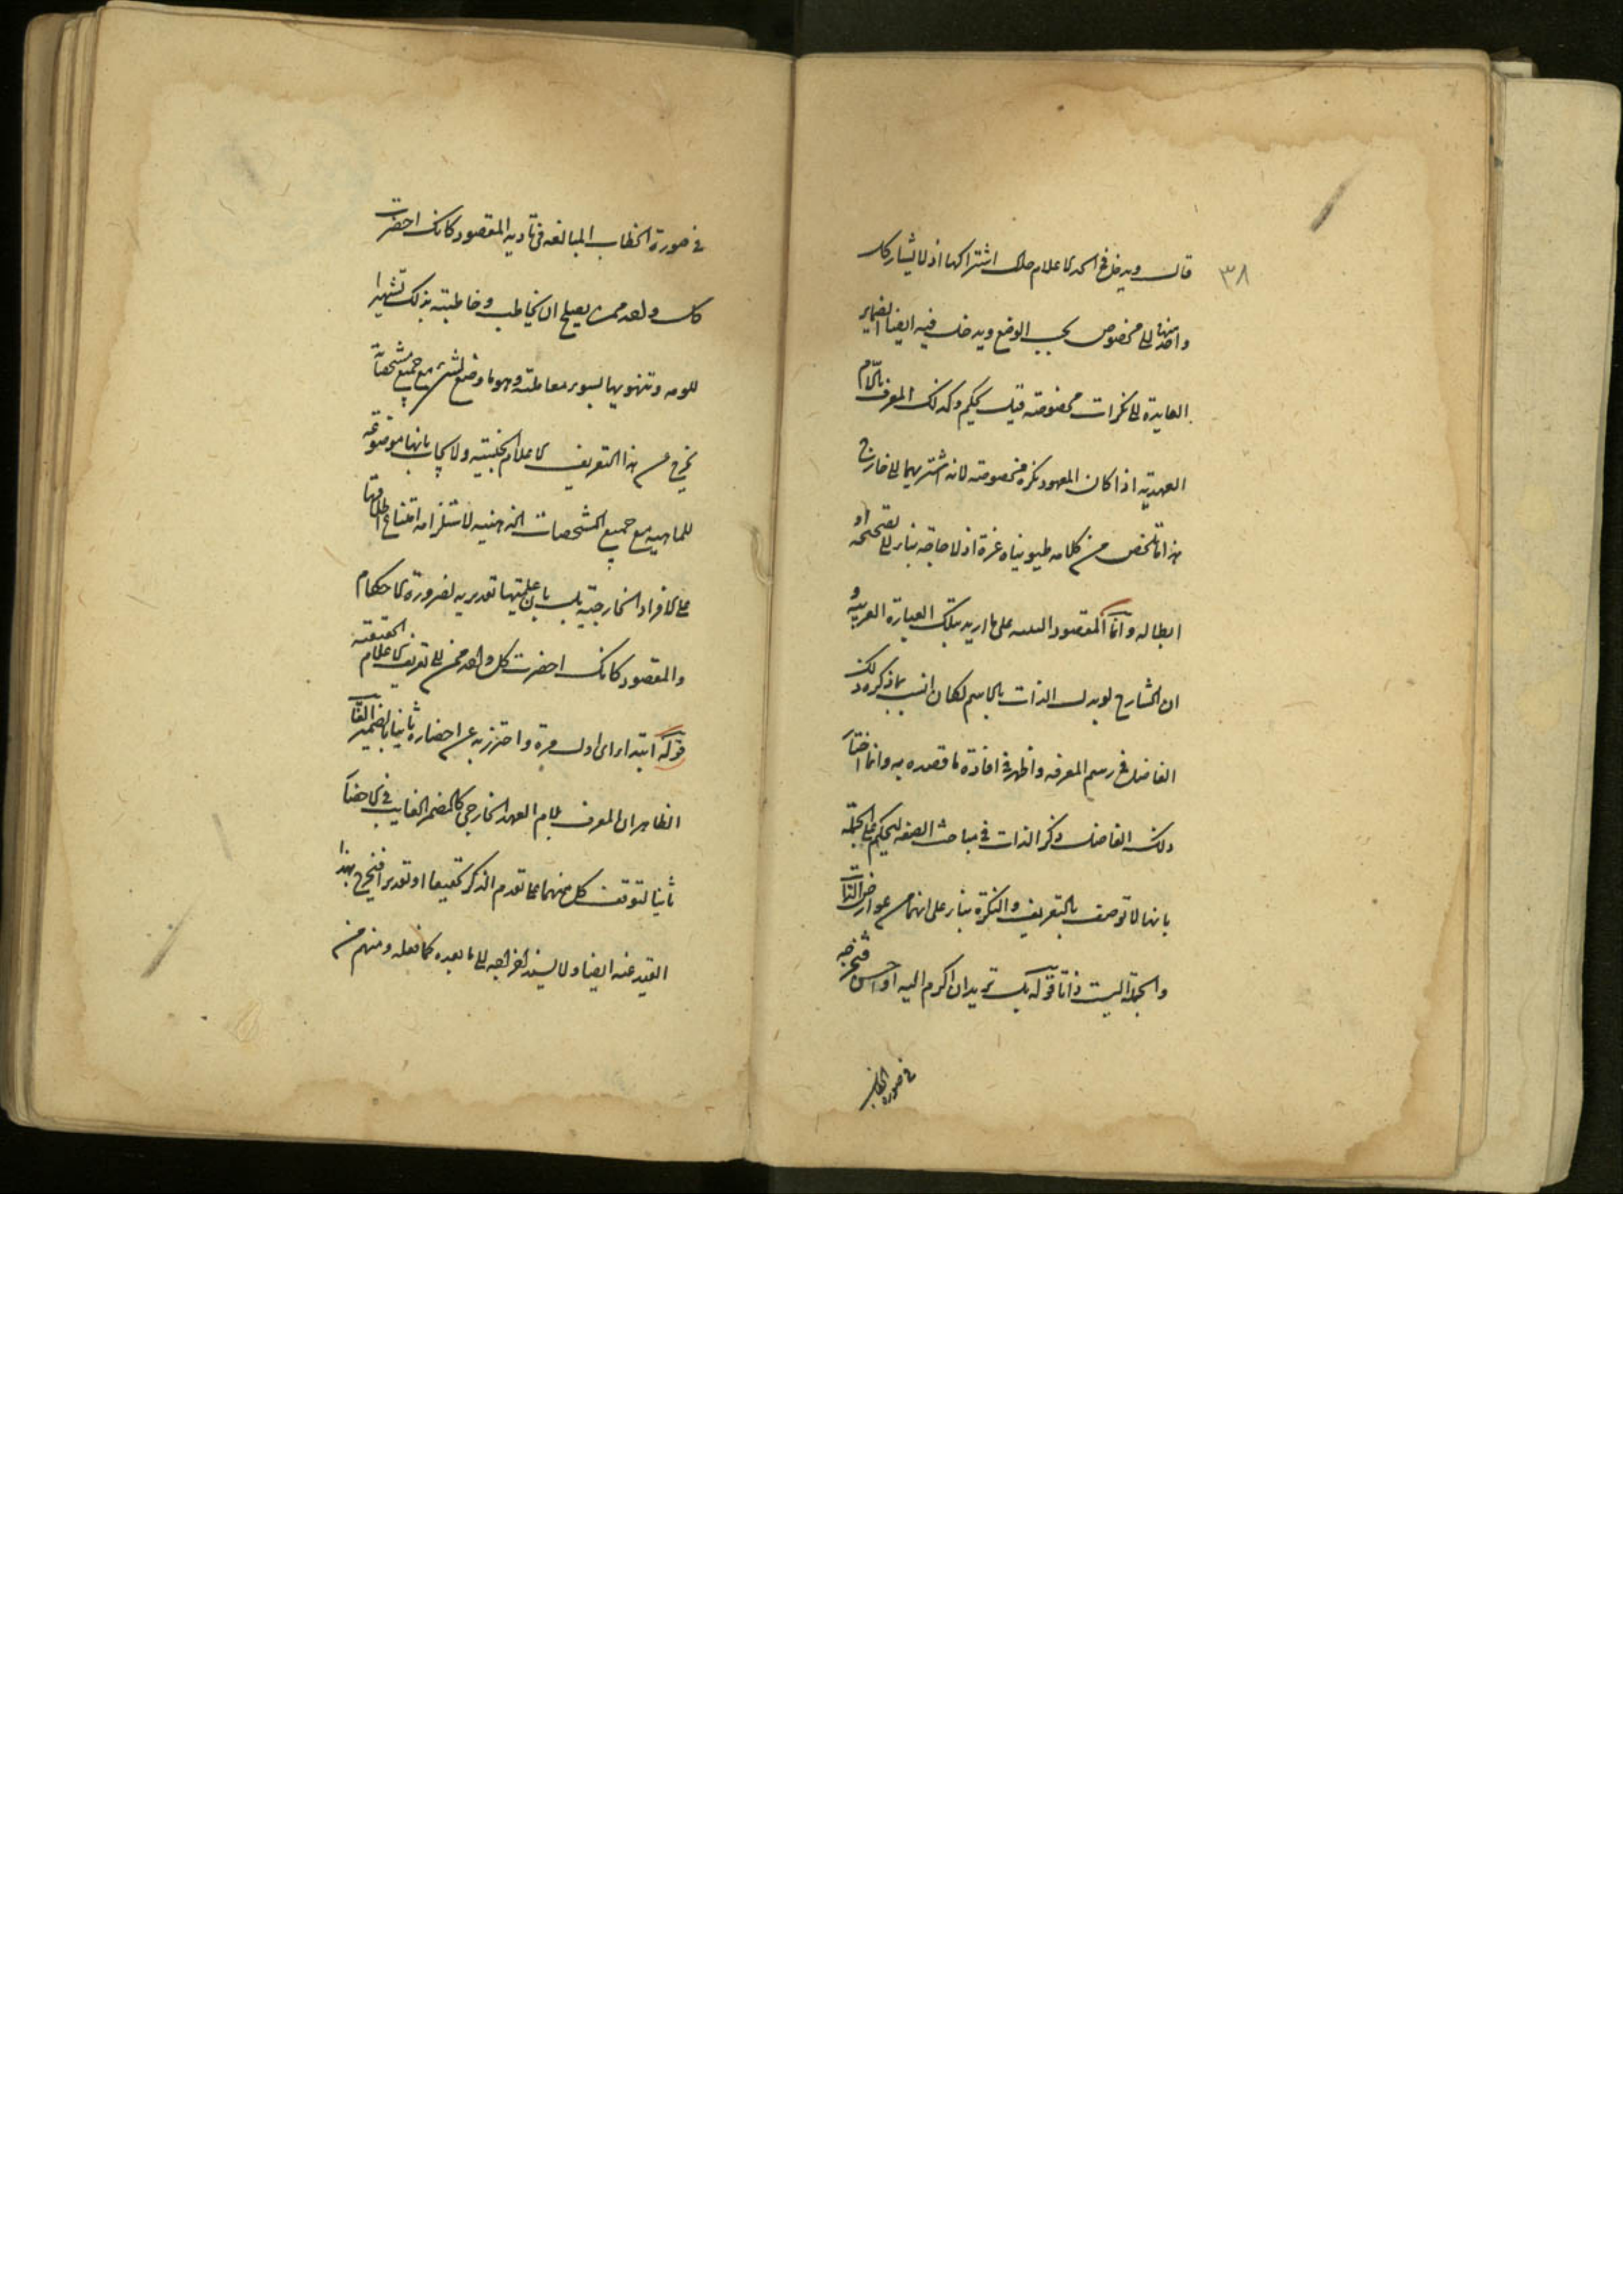 ٣٨
قال ويدخل في الحد الاعلام حال اشتراكها اذ لا يشار بكل
واحد منها الى مخصوص بحسب الوضع ويدخل فيه ايضا الضماير
العايدة الى نكرات مخصوصة قبل بحكم وكذلك المعرف باللام
العهدية اذا كان المعهود نكرة مخصوصة لانه اشير بهما الى خارج
هذا ما تلخص من كلامه اذ لا حاجة بنا الى تصحيحه او
ابطاله وانما المقصود التنبيه على ما اريد بتلك العبارة الغريبة و
ان الشارح لو بدل الذات بالاسم لكان انسب بما ذكره ذلك
الفاضل في رسم المعرفة واظهر في افادة ما قصده به وانما اختار
ذلك الفاضل ذكر الذات في مباحث الصفة ليحكم على الجملة
بانها لا توصف بالتعريف والنكرة بناء على انهما من عوارض الذات
والجملة ليست ذاتا قوله بل تريد ان اكرم اليه او احسن فتخرجه
في صورة الخطاب
في صورة الخطاب المبالغة في تادية المقصود كانك احضرت
كل واحد ممن يصلح ان يخاطب وخاطبته بذلك تشهيرا
للومه وتنويها لسوء معاملته وهو ما وضع لشيء مع جميع مشخصاته
يخرج عن هذا التعريف الاعلام الجنسية ولا يجاب بانها موضوعة
للماهية مع جميع المشخصات الذهنية لاستلزامه امتناع اطلاقها
على الافراد الخارجية بل بان علميتها تقديرية لضرورة الاحكام
والمقصود كانك احضرت كل واحد ممن الى تعريف الاعلام الحقيقية
قوله ابتداء اى اول مرة واحترز به عن احضاره ثانيا بالضمير الغا
الظاهر ان المعرف بلام العهد الخارجي كالمضمر الغايب في الاحضا
ثانيا لتوقف كل منهما على تقدم الذكر تحقيقا او تقديرا فيخرج بهذا
القيد عنه ايضا ولا يسند اخراجه الى ما بعده كما فعله ومنهم من